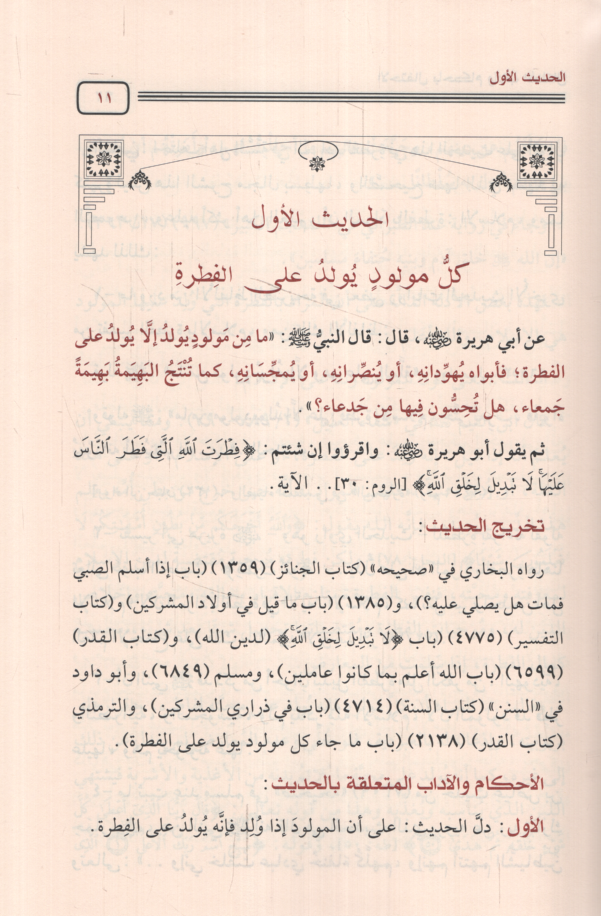 الحديث الأول
١١
الحديث الأول
كلُّ مولودٍ يُولدُ على الفِطرةِ
عن أبي هريرة رضي الله عنه، قال: قال النبيُّ ﷺ: «ما مِن مَولودٍ يُولدُ إلَّا يُولدُ على
الفطرة؛ فأبواه يُهوِّدانِهِ، أو يُنصِّرانِهِ، أو يُمجِّسَانِهِ، كما تُنْتَجُ البَهِيمَةُ بَهِيمَةً
جَمعاء، هل تُحِسُّون فِيها مِن جَدعاء؟».
ثم يقول أبو هريرة رضي الله عنه: واقرؤوا إن شئتم: ﴿فِطْرَتَ ٱللَّهِ ٱلَّتِى فَطَرَ ٱلنَّاسَ
عَلَيْهَاۚ لَا نَبْدِيلَ لِخَلْقِ ٱللَّهِۚ﴾ [الروم: ٣٠].. الآية.
تخريج الحديث:
رواه البخاري في «صحيحه» (كتاب الجنائز) (١٣٥٩) (باب إذا أسلم الصبي
فمات هل يصلي عليه؟)، و(١٣٨٥) (باب ما قيل في أولاد المشركين) و(كتاب
التفسير) (٤٧٧٥) (باب ﴿لَا نَبْدِيلَ لِخَلْقِ ٱللَّهِۚ﴾ (لدين الله)، و(كتاب القدر)
(٦٥٩٩) (باب الله أعلم بما كانوا عاملين)، ومسلم (٦٨٤٩)، وأبو داود
في «السنن» (كتاب السنة) (٤٧١٤) (باب في ذراري المشركين)، والترمذي
(كتاب القدر) (٢١٣٨) (باب ما جاء كل مولود يولد على الفطرة).
الأحكام والآداب المتعلقة بالحديث:
الأول: دلَّ الحديث: على أن المولودَ إذا وُلِد فإنَّه يُولدُ على الفِطرة.